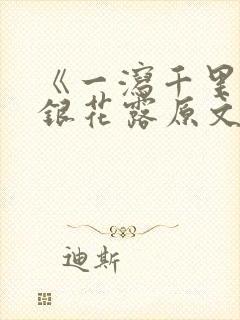 《一瀉千里
銀花露原文
迪斯